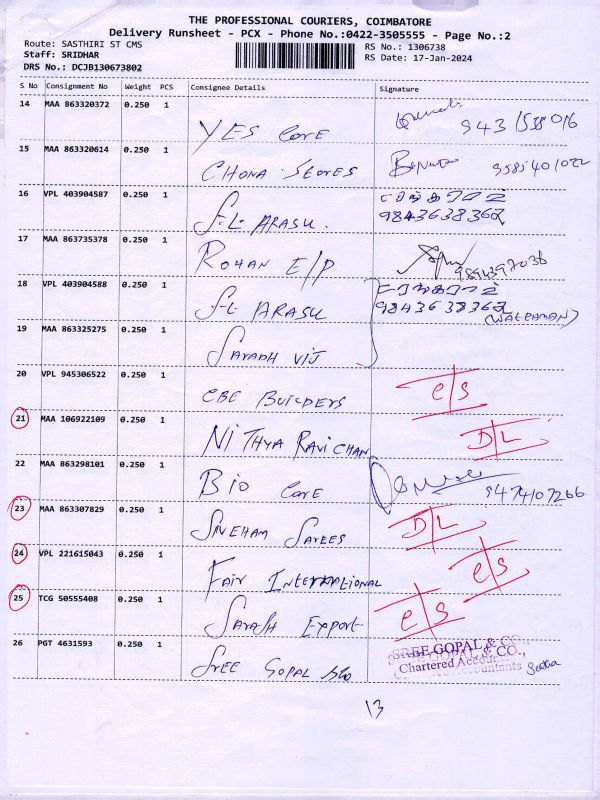 THE PROFESSIONAL COURIERS, COIMBATORE
Delivery Runsheet - PCX - Phone No.:0422-3505555 - Page No.:2
Route: SASTHIRI ST CMS
RS No.: 1306738
Staff: SRIDHAR
RS Date: 17-Jan-2024
DRS No.: DCJB130673802
S No Consignment No Weight PCS Consignee Details Signature
14 MAA 863320372 0.250 1
YES Care
15 MAA 863320614 0.250 1
CHONA STORES 9585401022
16 VPL 403904587 0.250 1
S.L ARASU. 9843638362
17 MAA 863735378 0.250 1
ROHAN E/P
18 VPL 403904588 0.250 1
S-L ARASU 9843638362
(WATCHMAN)
19 MAA 863325275 0.250 1
SARADH VIJ
20 VPL 945306522 0.250 1
CBE BUILDERS C/S
21 MAA 106922109 0.250 1
NITHYA RAVICHAN D/L
22 MAA 863298101 0.250 1
BIO Care 9474107266
23 MAA 863307829 0.250 1
SNEHAM SAREES D/L
24 VPL 221615043 0.250 1
FAIR INTERNATIONAL C/S
25 TCG 50555408 0.250 1
SARASH Export C/S
26 PGT 4631593 0.250 1
SREE GOPAL &co
SREE GOPAL & CO.,
Chartered Accountants
13